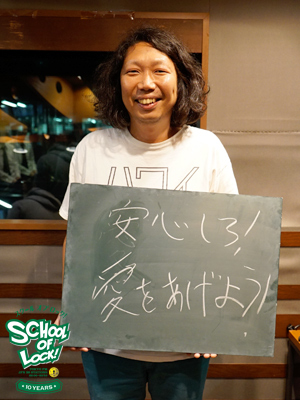 安心しろ!
愛をあげよう!
SCHOOL
OF
LOCK!
10 YEARS